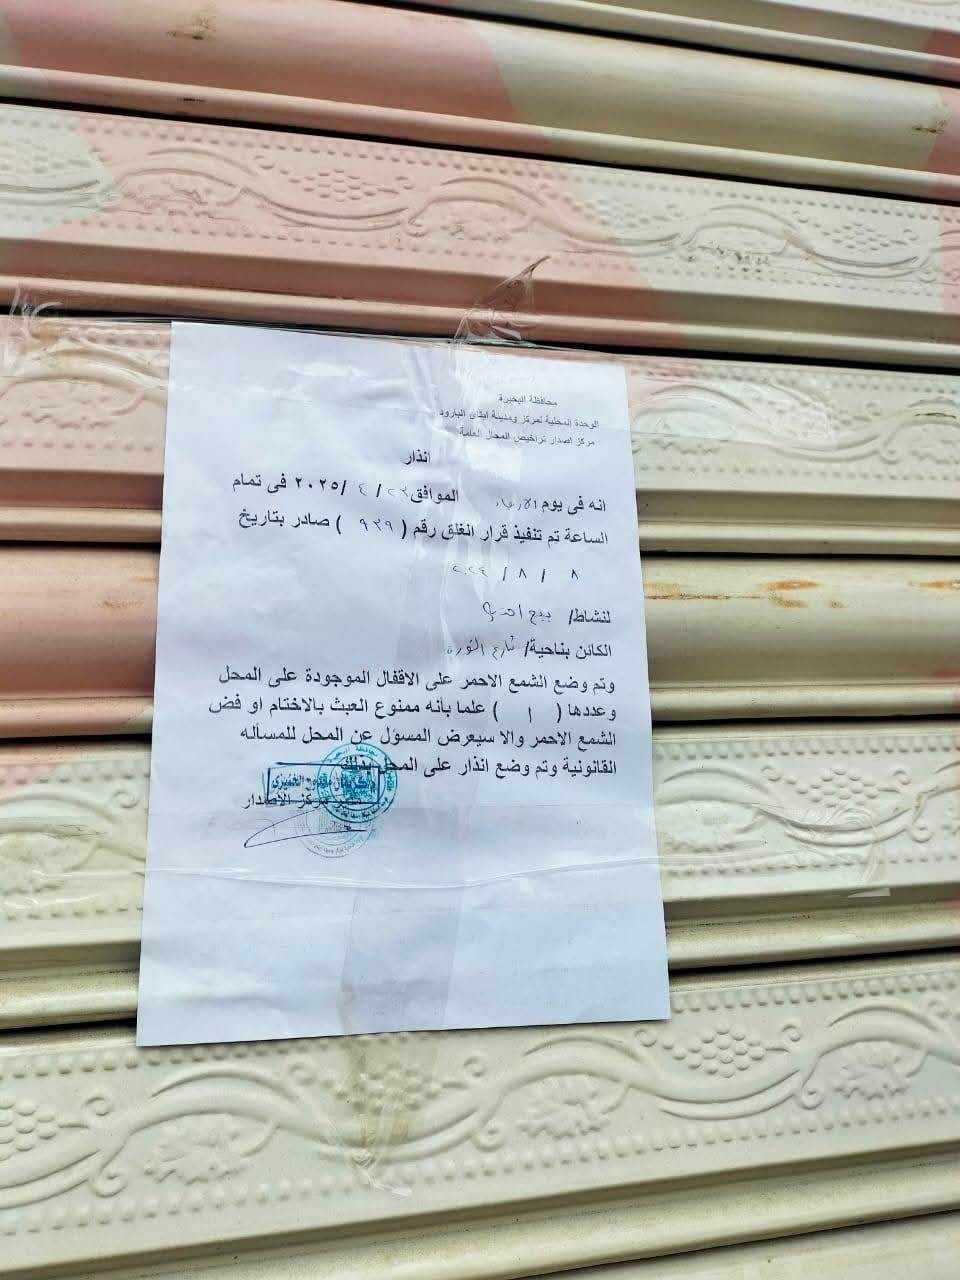 محافظة البحيرة
الوحدة المحلية لمركز ومدينة ايتاى البارود
مركز اصدار تراخيص المحال العامة
انذار
انه فى يوم الاربعاء الموافق ٢٣ / ٤ /٢٠٢٥ فى تمام
الساعة تم تنفيذ قرار الغلق رقم ( ٩٣٩ ) صادر بتاريخ
٨ / ٨ / ٢٠٢٤
لنشاط/ بيع احذية
الكائن بناحية/ شارع الثورة
وتم وضع الشمع الاحمر على الاقفال الموجودة على المحل
وعددها ( ١ ) علما بأنه ممنوع العبث بالاختام او فض
الشمع الاحمر والا سيعرض المسؤل عن المحل للمسأله
القانونية وتم وضع انذار على المحل بذلك
مدير مركز الاصدار